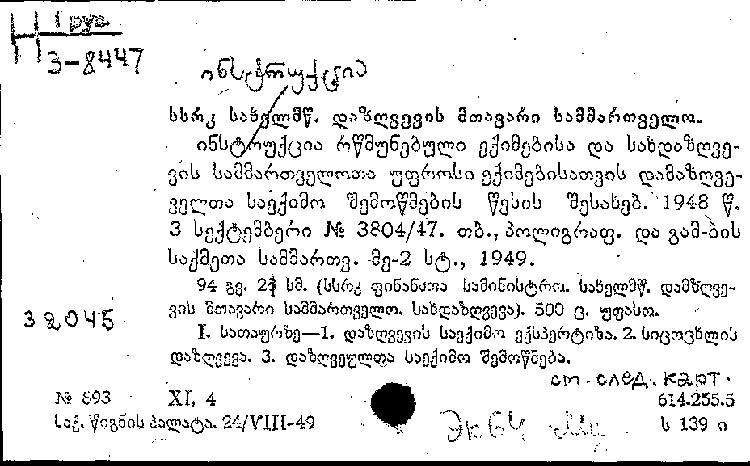 1 რუს
Н
3-8447
ინსტრუქცია
სსრკ სახელმწ. დაზღვევის მთავარი სამმართველო.
ინსტრუქცია რწმუნებული ექიმებისა და სახდაზღვე-
ვის სამმართველოთა უფროსი ექიმებისათვის დამაზღვე-
ველთა საექიმო შემოწმების წესის შესახებ. 1948 წ.
3 სექტემბერი № 3804/47. თბ., პოლიგრაფ. და გამ-ბის
საქმეთა სამმართვ. მე-2 სტ., 1949.
94 გვ. 23 სმ. (სსრკ ფინანსთა სამინისტრო. სახელმწ. დამზღვე-
ვის მთავარი სამმართველო. სახდაზღვევა). 500 ც. უფასო.
38045
I. სათაურზე—1. დაზღვევის საექიმო ექსპერტიზა. 2. სიცოცხლის
დაზღვევა. 3. დაზღვეულთა საექიმო შემოწმება.
см. след. карт.
№ 893 XI, 4 614.255.5
საქ. წიგნის პალატა. 24/VIII-49 ს 139 ი